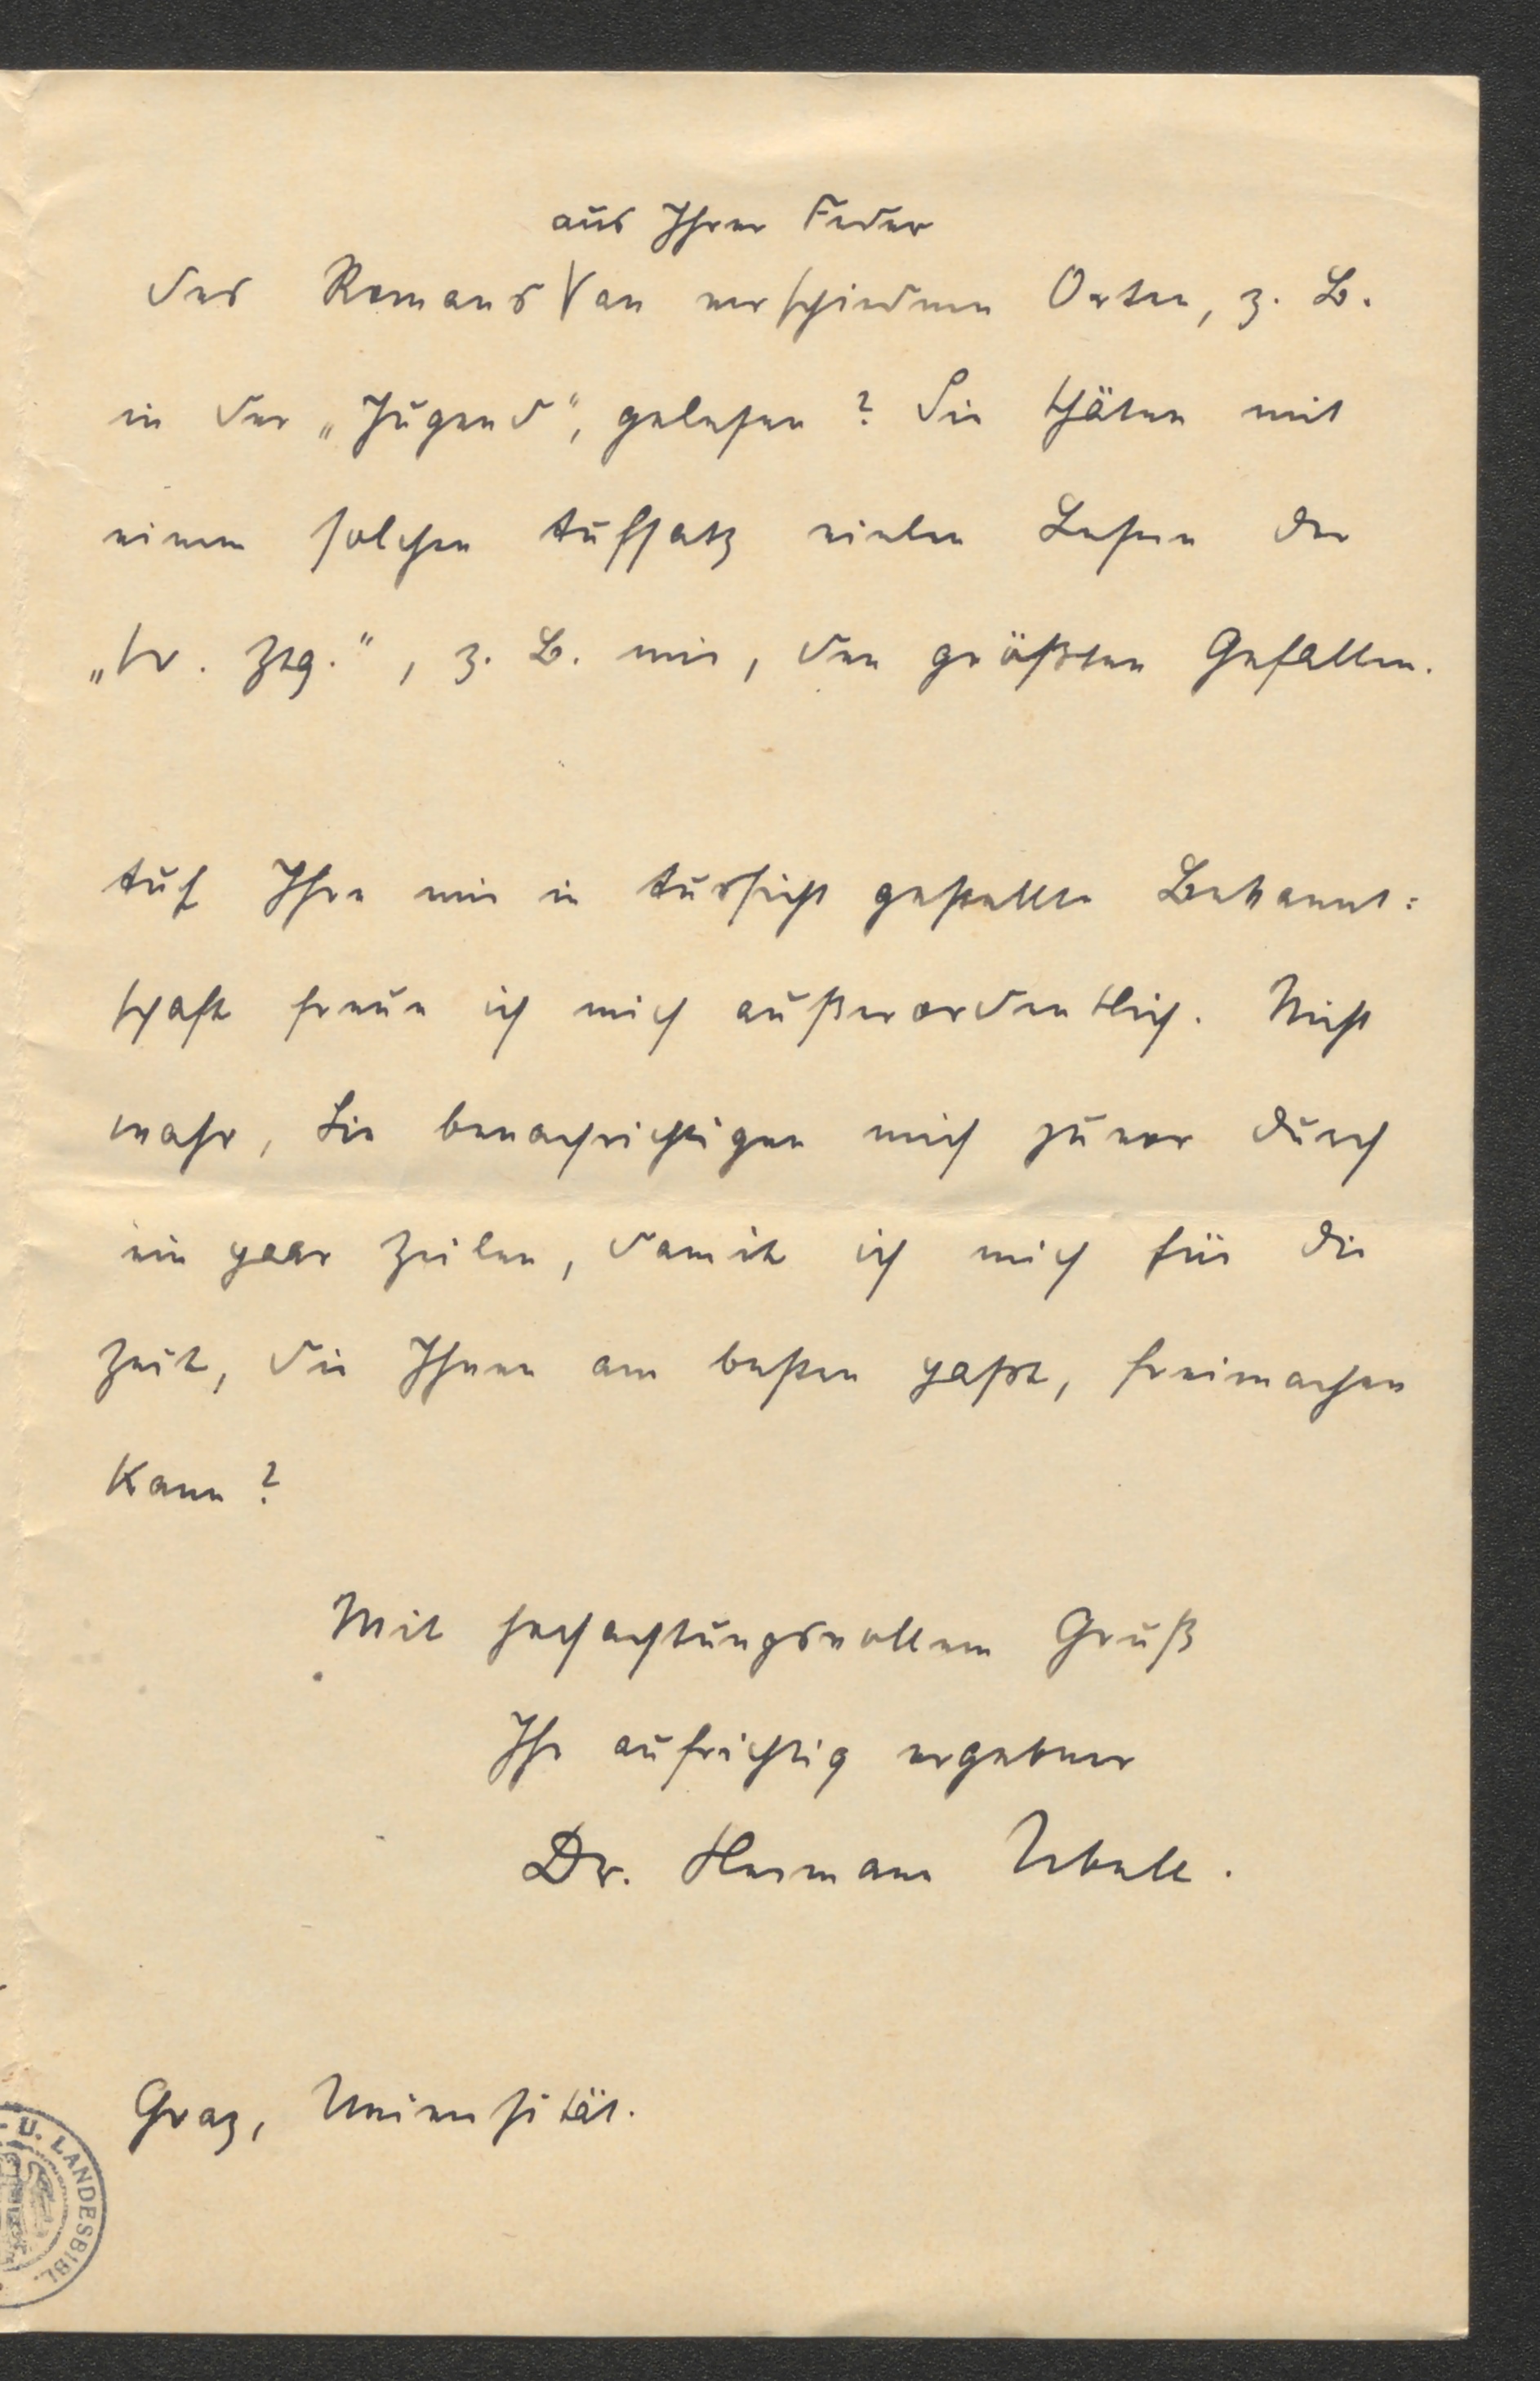 aus Ihrer Feder
des Romans √an verschiednen Orten, z. B.
in der „Jugend“, gelesen? Sie thäten mit
einem solchen Aufsatz vielen Lesern der
„Fr. Ztg.“, z. B. mir, den größten Gefallen.
Auf Ihre mir in Aussicht gestellte Bekannt=
schaft freue ich mich außerordentlich. Nicht
wahr, Sie benachrichtigen mich zuvor durch
ein paar Zeilen, damit ich mich für die
Zeit, die Ihnen am besten paßt, freimachen
kann?
Mit hochachtungsvollem Gruß
Ihr aufrichtig ergebner
Dr. Hermann Ubell.
Graz, Universität.
U. LANDESBIBL.